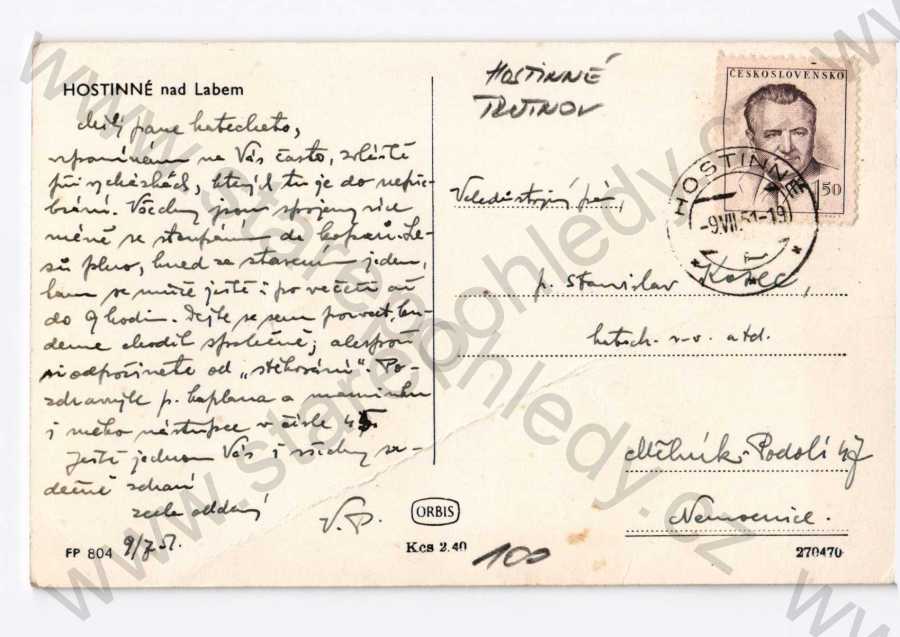 HOSTINNÉ nad Labem
Milý pane katecheto,
vzpomínám na Vás často, zvláště
při vycházkách, kterých tu je do nepře-
brání. Všechny jsou spojeny více
méně se stoupáním do kopců. Le-
sů plno, hned za stavením jeden,
tam se může jíti i po večeři až
do 9 hodin. Dejte se sem pozvat, bu-
deme chodit společně; alespoň
si odpočinete od „stěhování“. Po-
zdravujte p. kaplana a maminku
i mého nástupce v čísle 45.
Ještě jednou Vás i všechny sr-
dečně zdraví
zcela oddaný
V.P.
FP 804
9/7 51.
ORBIS
Kcs 2.40
100
HOSTINNÉ
TRUTNOV
ČESKOSLOVENSKO
1,50
HOSTINNÉ
-9.VII.51-19
Veledůstojný pán,
p. Stanislav
katech. v.v. atd.
Mělník-Podolí 47
Nemocnice.
270470
www.starepohledy.cz
www.starepohledy.cz